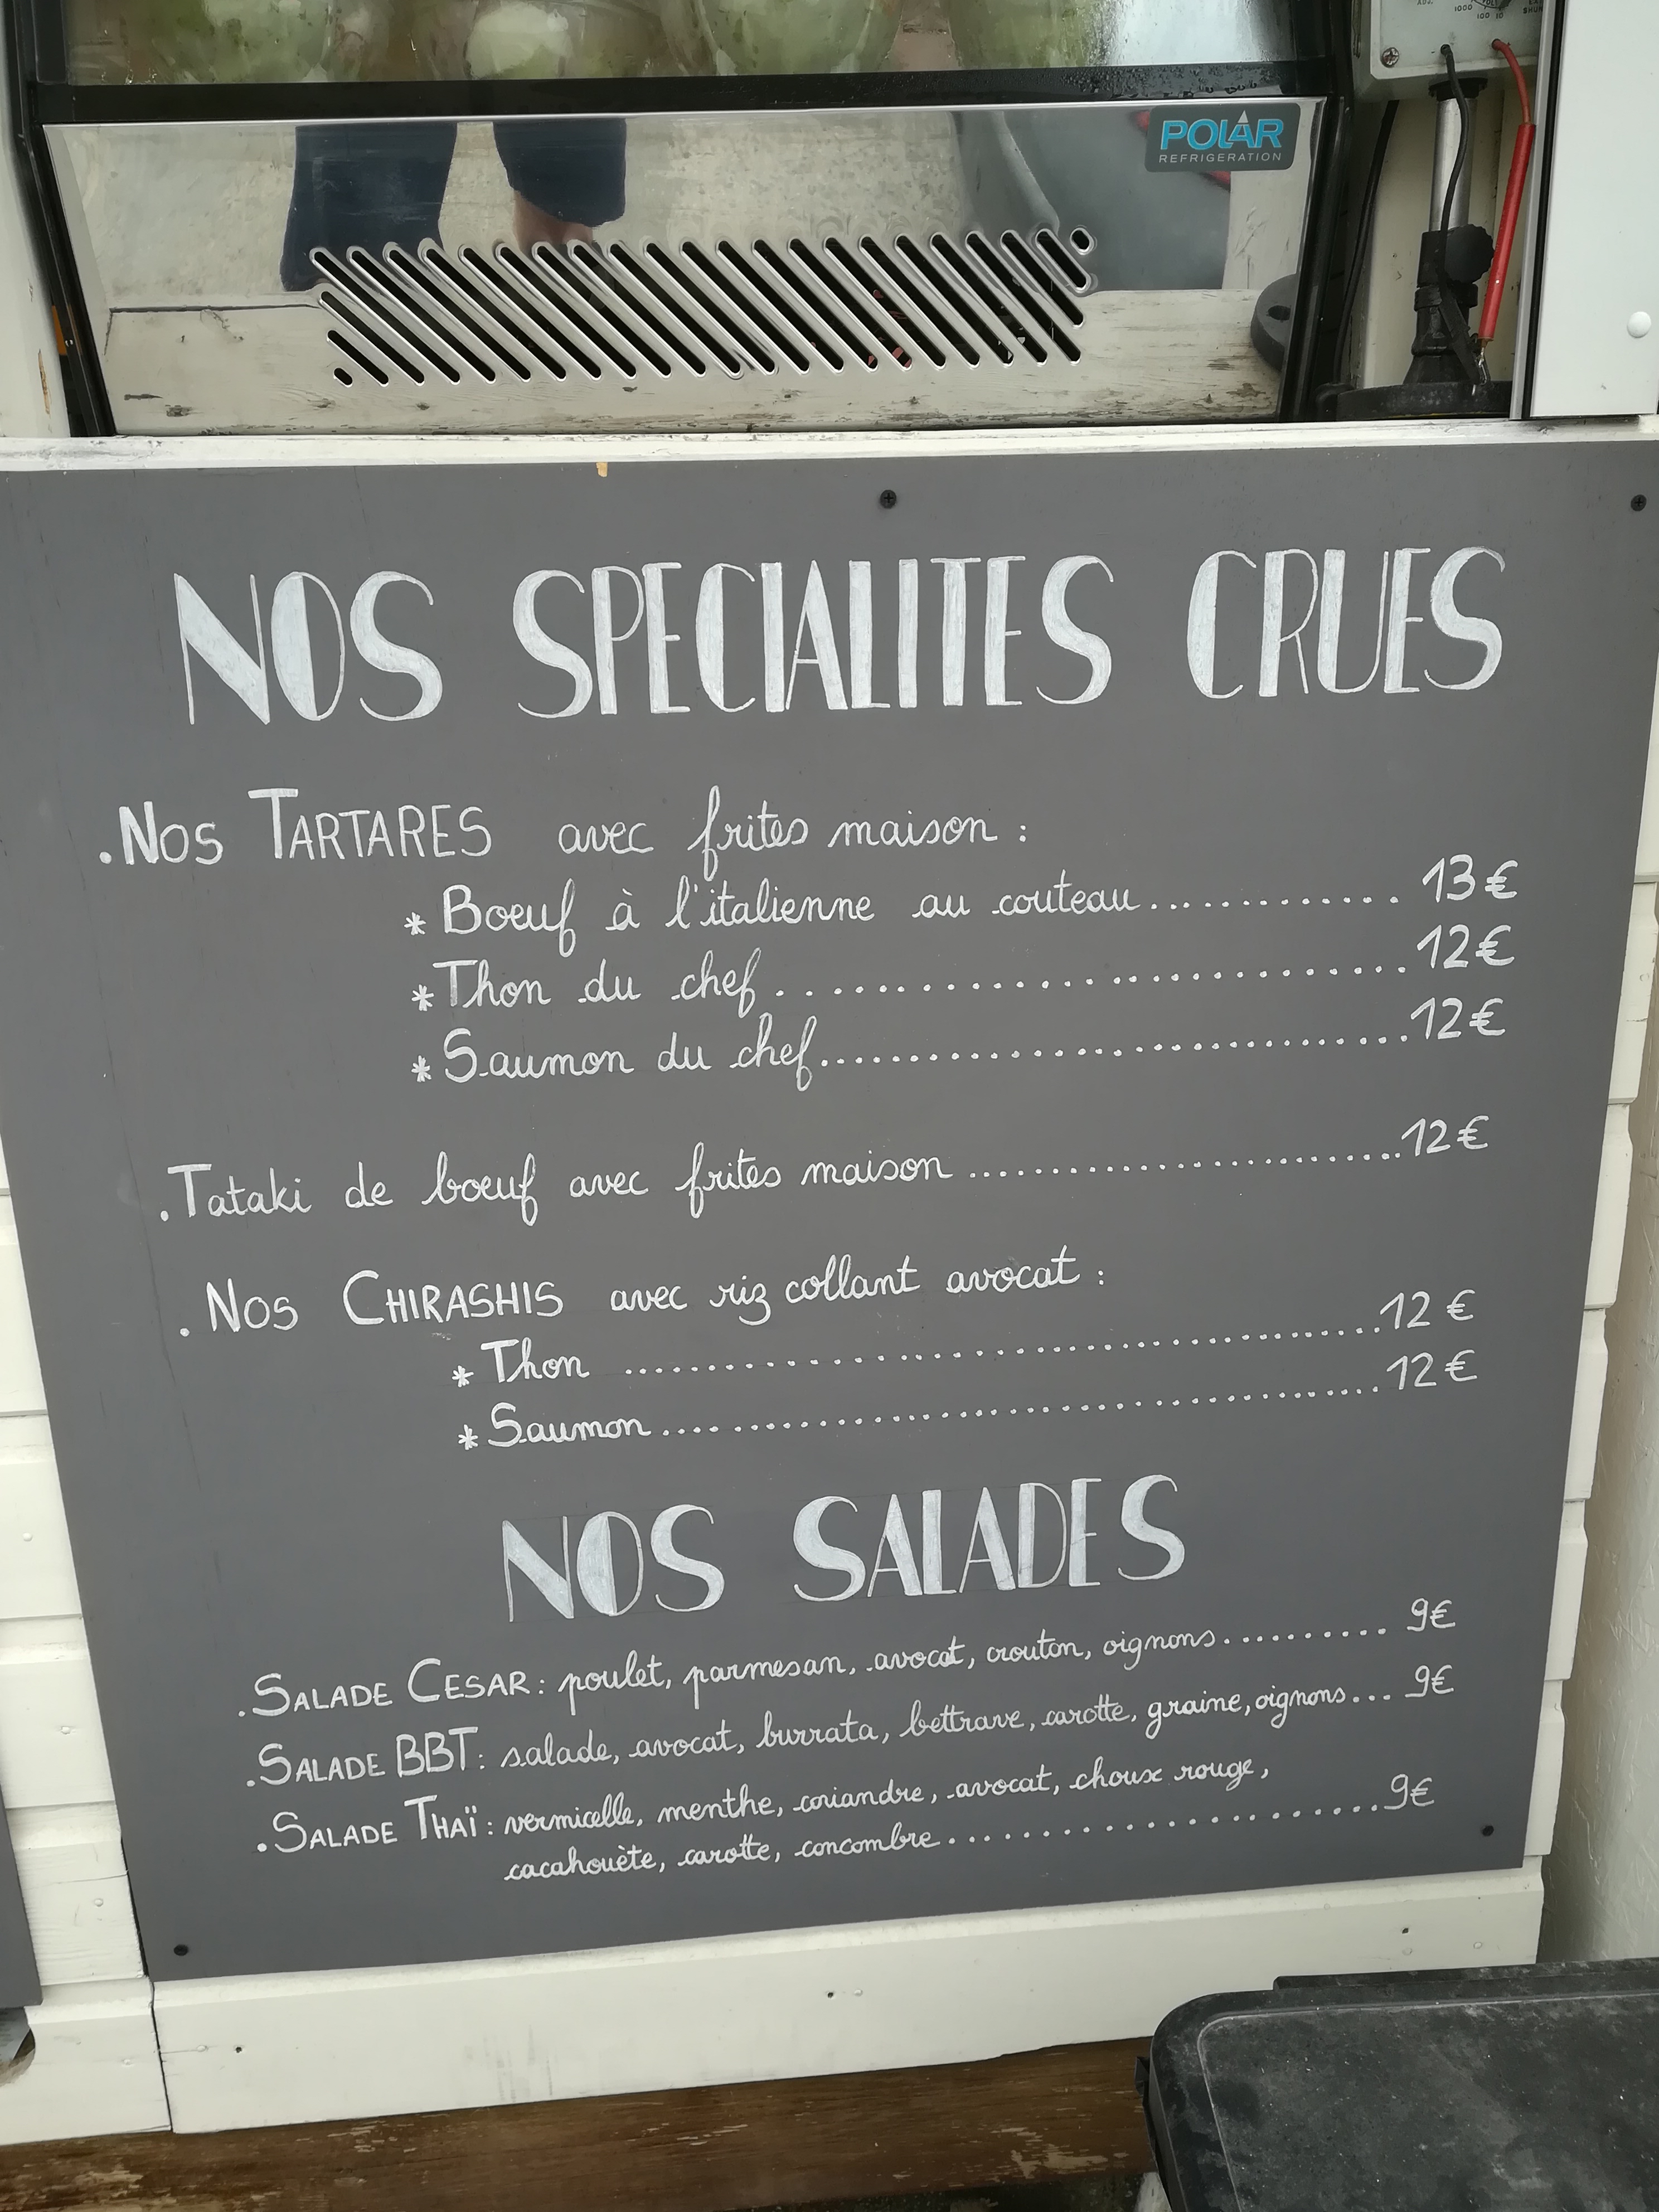 POLAR
REFRIGERATION
NOS SPECIALITES CRUES
.NOS TARTARES avec frites maison :
* Boeuf à l'italienne au couteau............. 13€
* Thon du chef............................12€
* Saumon du chef............................12€
.Tataki de boeuf avec frites maison........................12€
.NOS CHIRASHIS avec riz collant avocat :
* Thon ............................12 €
* Saumon............................12 €
NOS SALADES
.SALADE CESAR : poulet, parmesan, avocat, crouton, oignons.......... 9€
.SALADE BBT : salade, avocat, burrata, bettrave, carotte, graine, oignons... 9€
.SALADE THAÏ : vermicelle, menthe, coriandre, avocat, choux rouge,
cacahouète, carotte, concombre......................9€